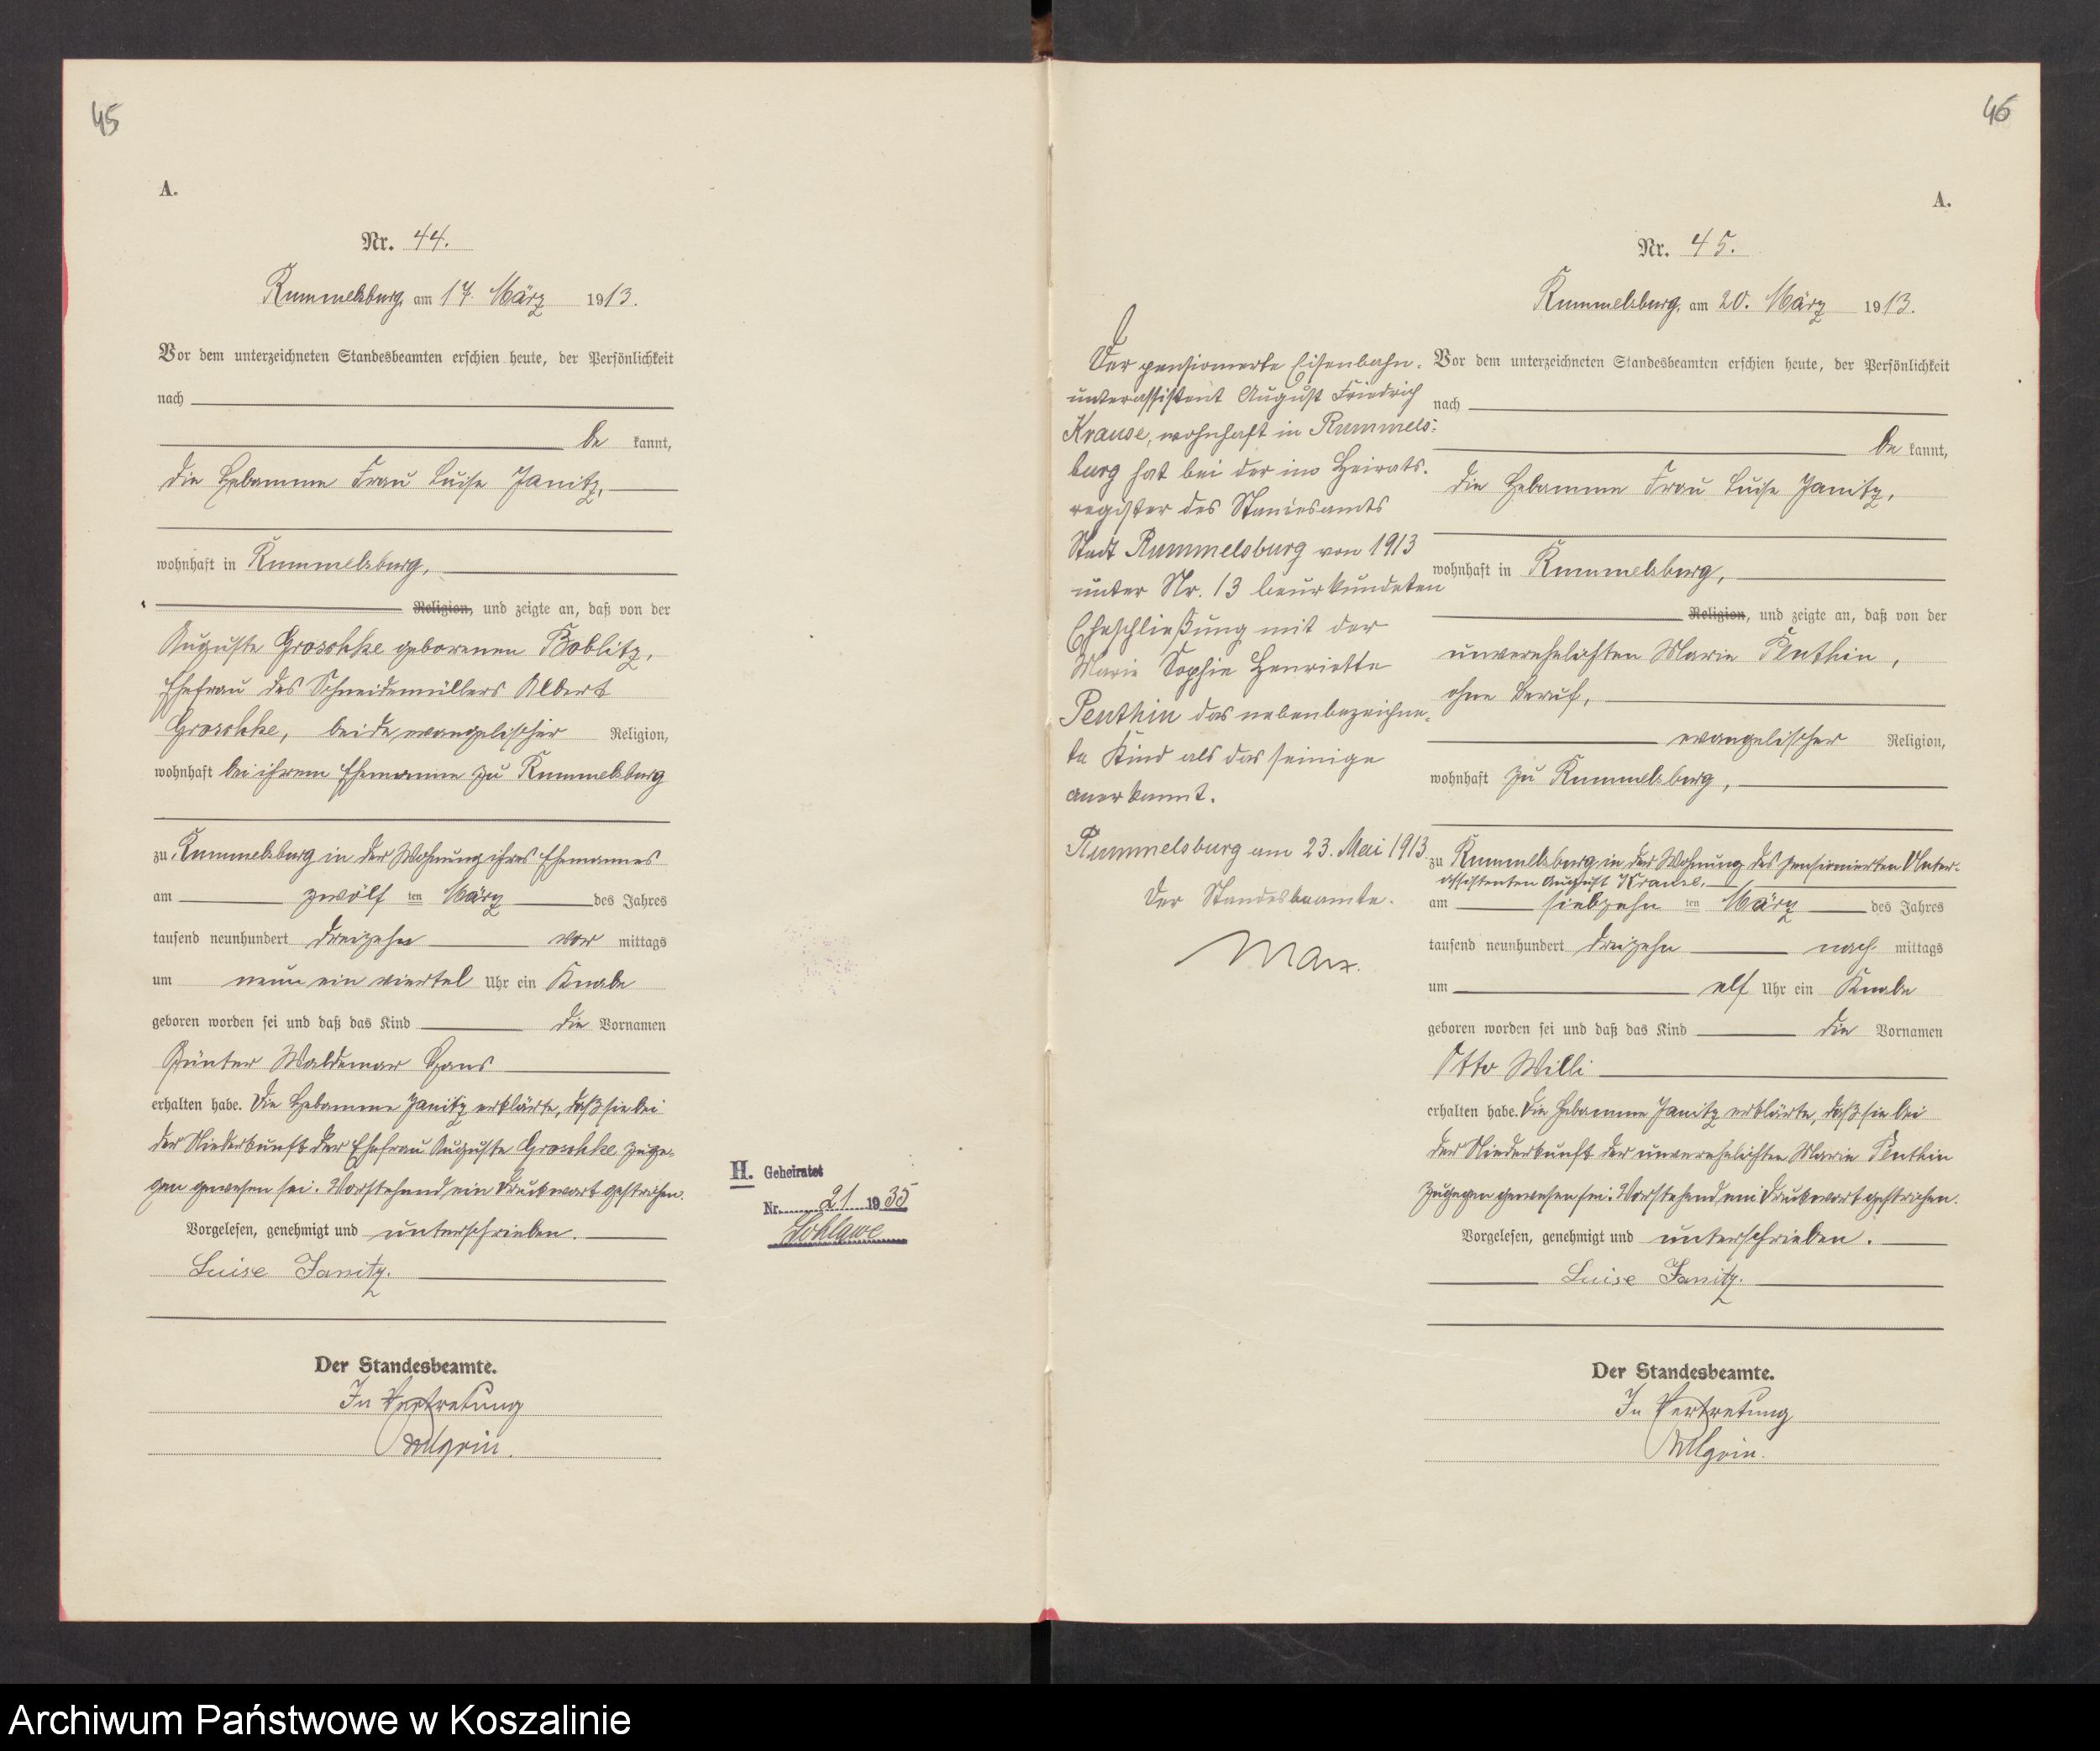 45
A.
Nr. 44.
Rummelsburg, am 17. März 1913.
Vor dem unterzeichneten Standesbeamten erschien heute, der Persönlichkeit
nach
be kannt,
die Hebamme Frau Luise Janitz,
wohnhaft in Rummelsburg,
Religion, und zeigte an, daß von der
Auguste Groschke geborenen Boblitz,
Ehefrau des Schneidemüllers Albert
Groschke, beide evangelischer Religion,
wohnhaft bei ihrem Ehemanne zu Rummelsburg
zu Rummelsburg in der Wohnung ihres Ehemannes
am zwölf ten März des Jahres
tausend neunhundert dreizehn vor mittags
um neun ein viertel Uhr ein Knabe
geboren worden sei und daß das Kind die Vornamen
Günter Waldemar Hans
erhalten habe. Die Hebamme Janitz erklärte, daß sie bei
der Niederkunft der Ehefrau Auguste Groschke zuge-
gen gewesen sei. Vorstehend ein Druckwort gestrichen.
Vorgelesen, genehmigt und unterschrieben.
Luise Janitz.
Der Standesbeamte.
In Vertretung
H. Geheiratet
Nr. 21 1935
46
A.
Nr. 45.
Rummelsburg, am 20. März 1913.
Der pensionierte Eisenbahn-
unterassistent August Friedrich
Krause, wohnhaft in Rummels-
burg hat bei der im Heirats-
register des Standesamts
Stadt Rummelsburg von 1913
unter Nr. 13 beurkundeten
Eheschließung mit der
Marie Sophie Henriette
Penthin das nebenbezeichne-
te Kind als das seinige
anerkannt.
Rummelsburg am 23. Mai 1913.
Der Standesbeamte.
Marx.
Vor dem unterzeichneten Standesbeamten erschien heute, der Persönlichkeit
nach
be kannt,
die Hebamme Frau Luise Janitz,
wohnhaft in Rummelsburg,
Religion, und zeigte an, daß von der
unverehelichten Marie Penthin,
ohne Beruf,
evangelischer Religion,
wohnhaft zu Rummelsburg,
zu Rummelsburg in der Wohnung des pensionierten Unter-
assistenten August Krause,
am siebzehn ten März des Jahres
tausend neunhundert dreizehn nach mittags
um elf Uhr ein Knabe
geboren worden sei und daß das Kind die Vornamen
Otto Willi
erhalten habe. Die Hebamme Janitz erklärte, daß sie bei
der Niederkunft der unverehelichten Marie Penthin
zugegen gewesen sei. Vorstehend ein Druckwort gestrichen.
Vorgelesen, genehmigt und unterschrieben.
Luise Janitz.
Der Standesbeamte.
In Vertretung
Archiwum Państwowe w Koszalinie